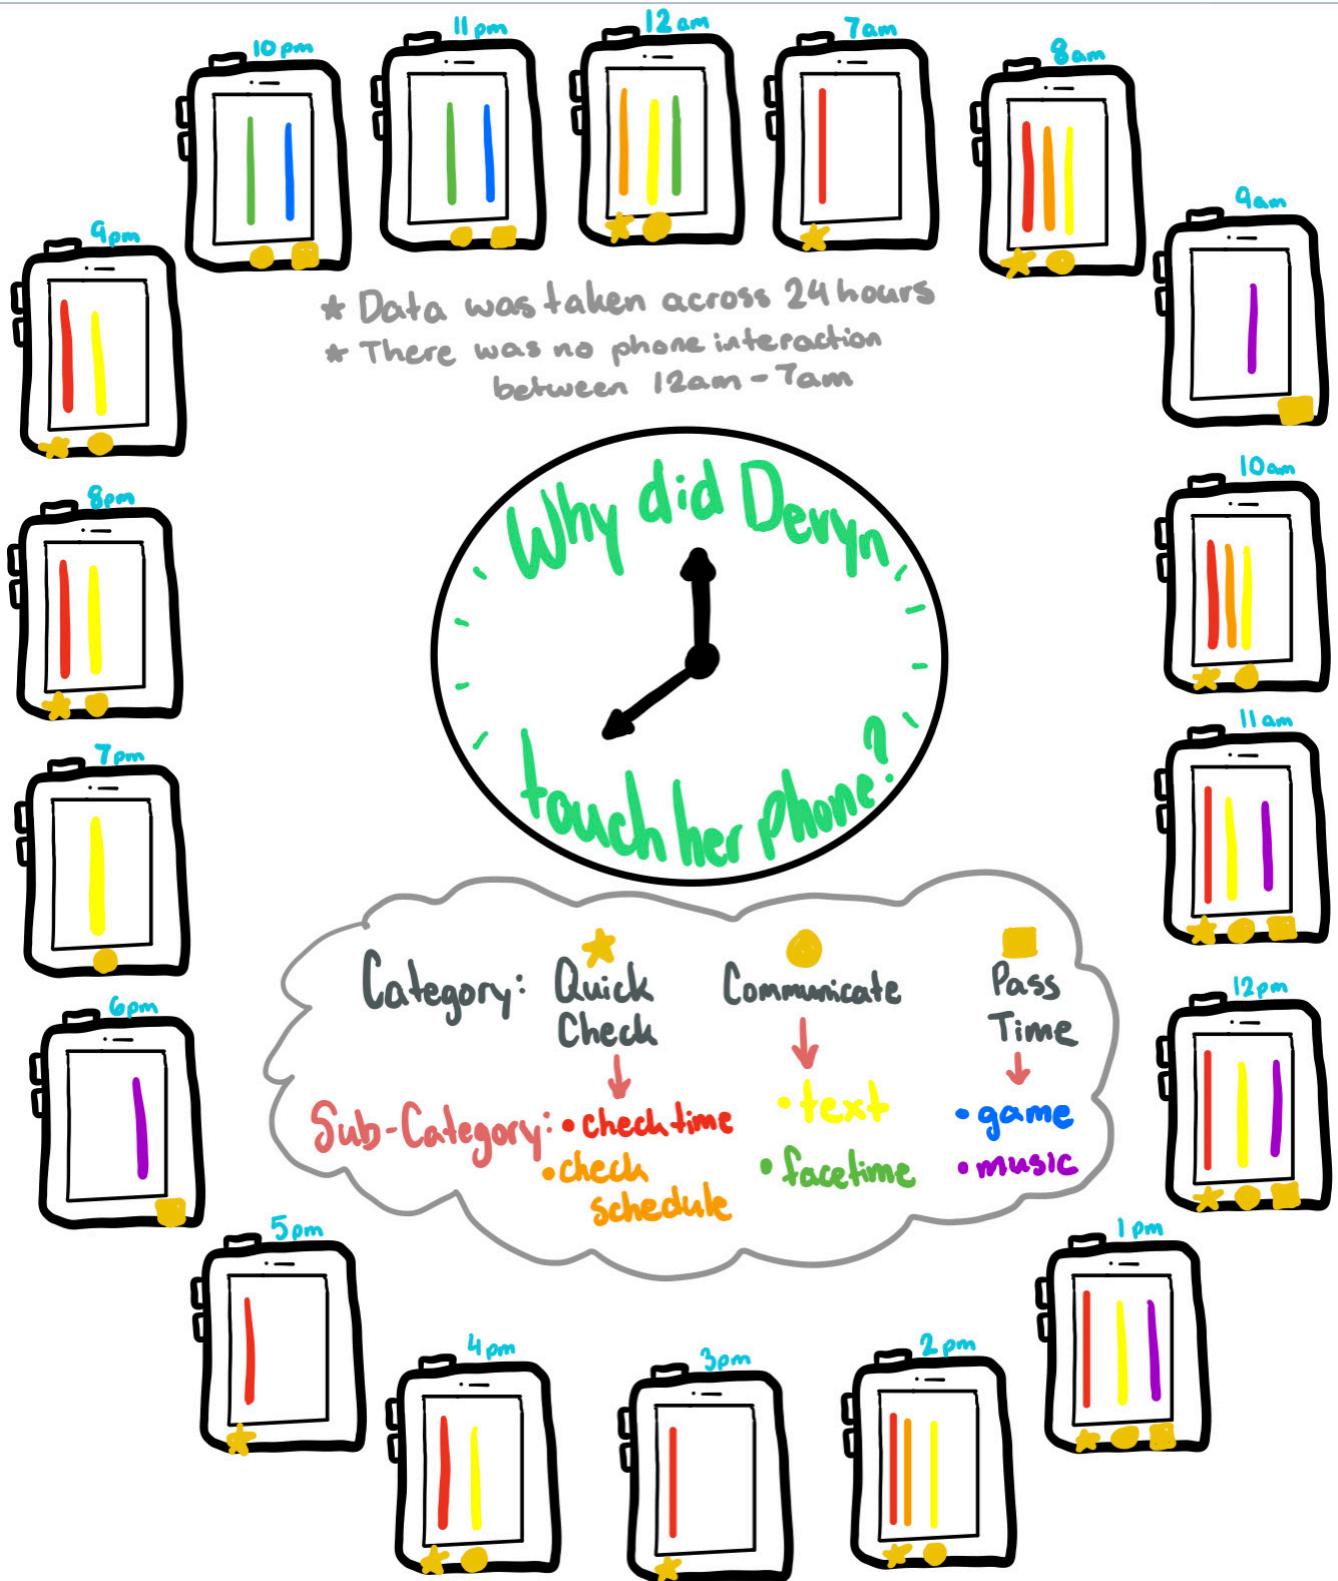 10pm
11pm
12am
7am
8am
9am
10am
11am
12pm
1pm
2pm
3pm
4pm
5pm
6pm
7pm
8pm
9pm
* Data was taken across 24 hours
* There was no phone interaction
between 12am - 7am
Why did Devyn
touch her phone?
Category: Quick Check Communicate Pass Time
Sub-Category: • check time • text • game
• check schedule • facetime • music